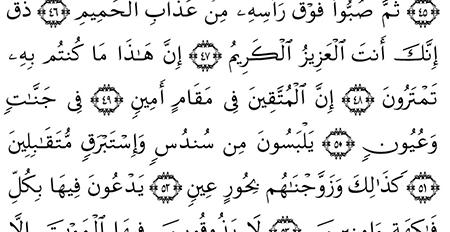 ﴿٤٥﴾ ثُمَّ صُبُّوا۟ فَوْقَ رَأْسِهِۦ مِنْ عَذَابِ ٱلْحَمِيمِ ﴿٤٦﴾ ذُقْ
إِنَّكَ أَنتَ ٱلْعَزِيزُ ٱلْكَرِيمُ ﴿٤٧﴾ إِنَّ هَـٰذَا مَا كُنتُم بِهِۦ
تَمْتَرُونَ ﴿٤٨﴾ إِنَّ ٱلْمُتَّقِينَ فِى مَقَامٍ أَمِينٍ ﴿٤٩﴾ فِى جَنَّـٰتٍ
وَعُيُونٍ ﴿٥٠﴾ يَلْبَسُونَ مِن سُندُسٍ وَإِسْتَبْرَقٍ مُّتَقَـٰبِلِينَ
﴿٥١﴾ كَذَٰلِكَ وَزَوَّجْنَـٰهُم بِحُورٍ عِينٍ ﴿٥٢﴾ يَدْعُونَ فِيهَا بِكُلِّ
فَـٰكِهَةٍ ءَامِنِينَ ﴿٥٣﴾ لَا يَذُوقُونَ فِيهَا ٱلْمَوْتَ إِلَّا